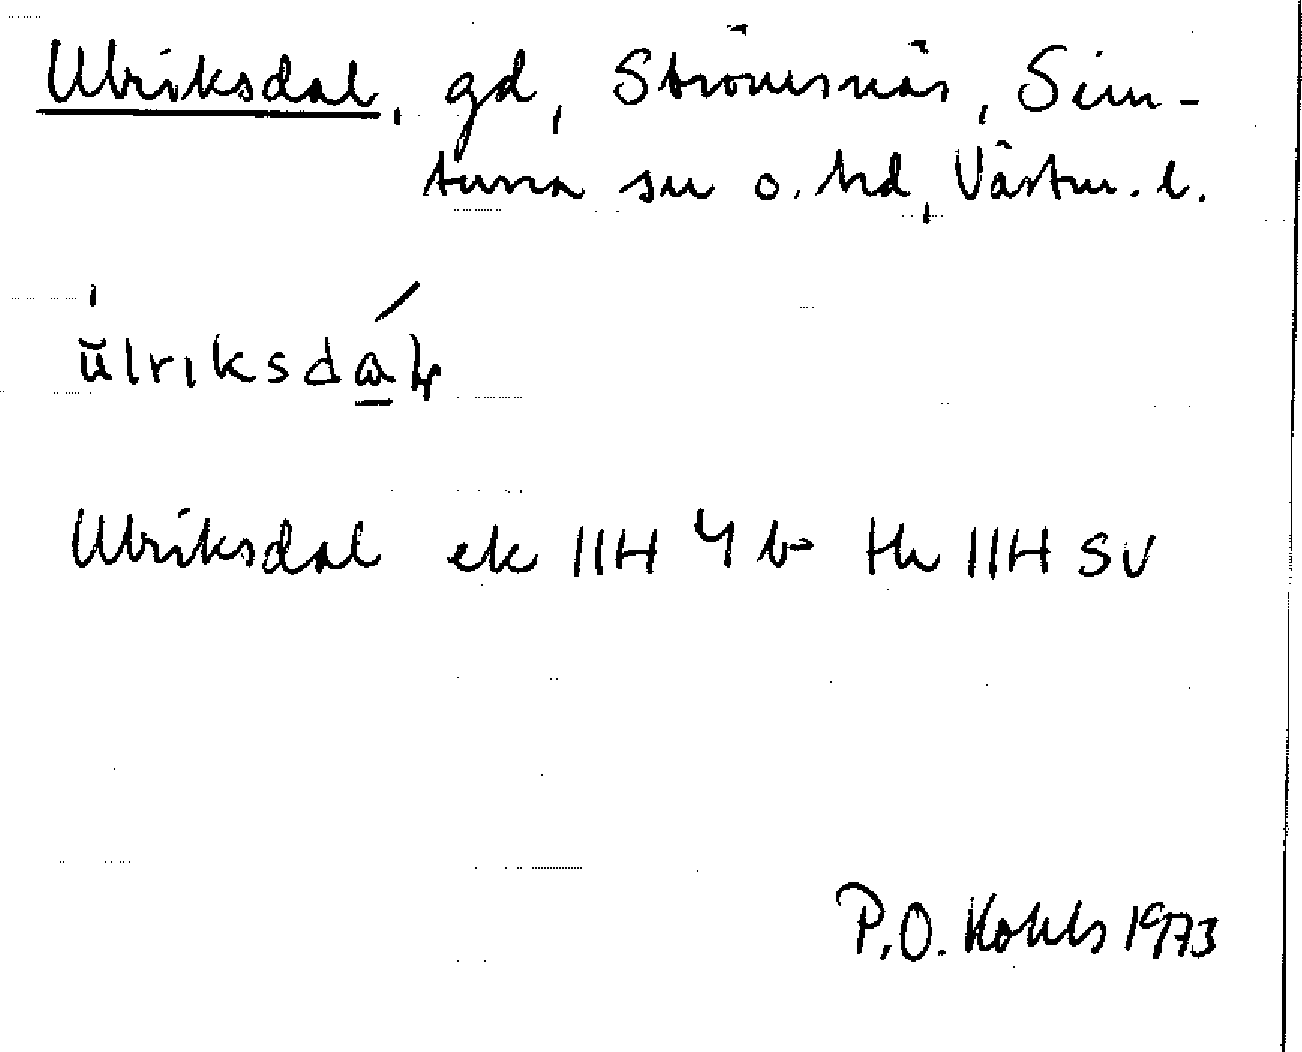 Ulriksdal, gd, Strömsnäs, Sim-
tuna sn o. hd, Västm. l.
ŭlriksdɑ́ḷ
Ulriksdal ek 11H 4b th 11H SV
P.O. Kohls 1973